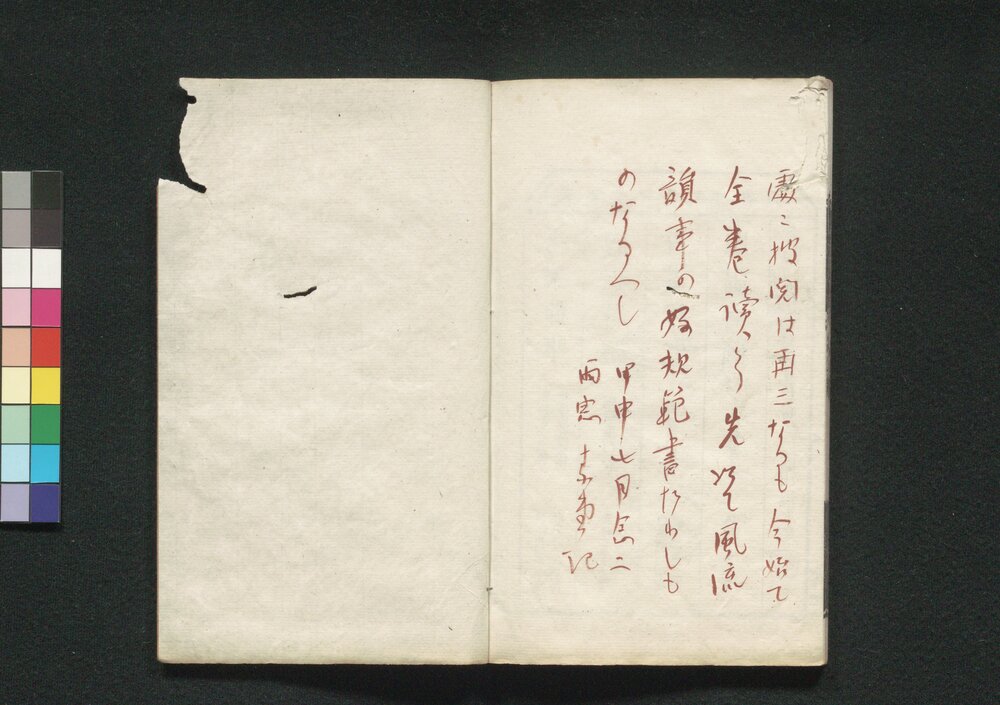 處々披閲は再三なるも今始て
全巻讀了先以て風流
韻事の好規範書たりしも
のなるへし
甲申七月念二
雨窓 素堂 記